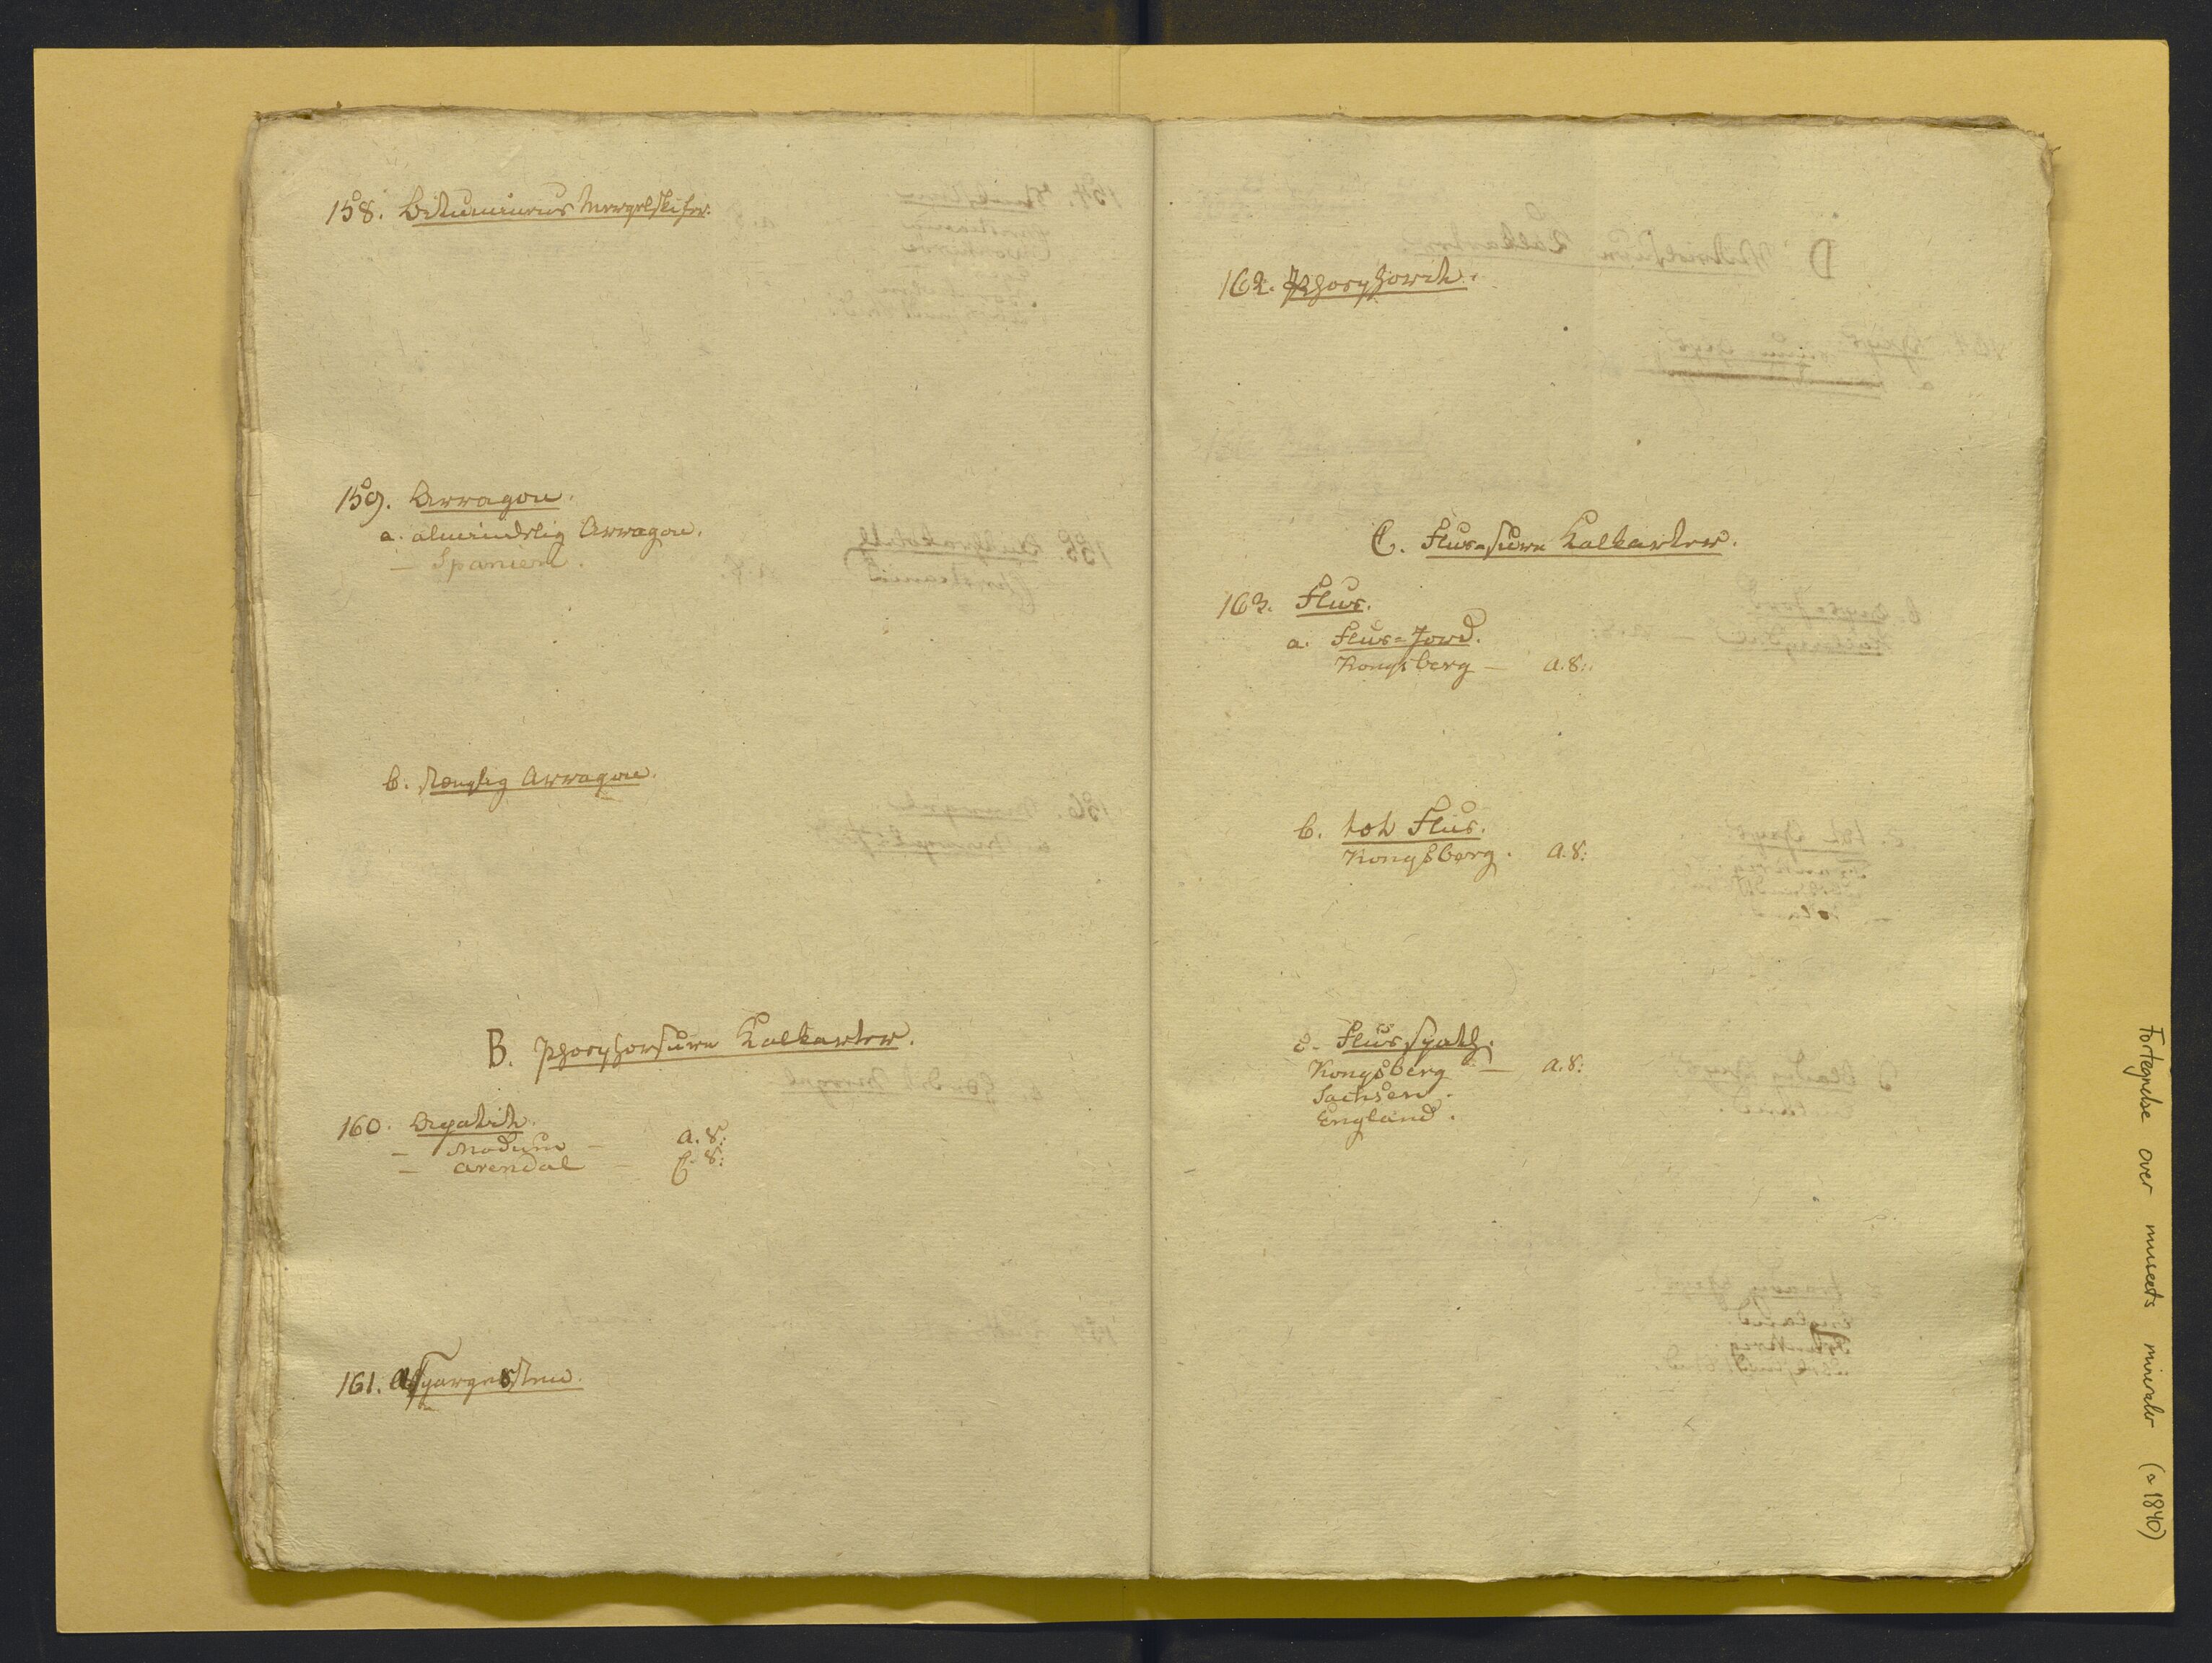 158. Bituminøus Mergelskifer.
159. Arragon.
a. almindelig Arragon.
— Spanien.
b. stænglig Arragon.
B. Phosphorsure Kalkarter.
160. Apatit.
— Modum — a. 8:
— Arendal — C. 8:
161. Aspargessten.
162. Phosphorit.
C. Flus-sure Kalkarter.
163. Flus.
a. Flus-Jord.
Kongsberg — a. 8:
b. tæt Flus.
Kongsberg. a. 8:
c. Flusspath.
Kongsberg — a. 8:
Sachsen.
England.
Fortegnelse over museets mineraler (~ 1840)